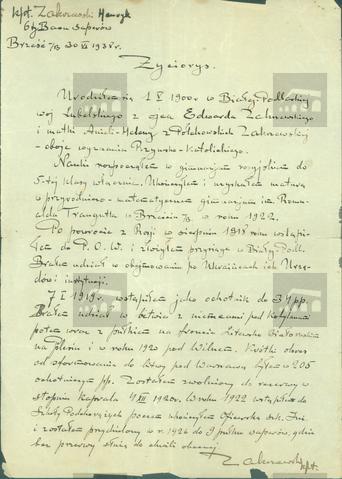 kpt. Zakrzewski Henryk
6ty Baon saperów
Brześć n/B 30 VI 1938 r.
Życiorys.
Urodziłem się 1 V 1900 r w Białej-Podlaskiej
woj Lubelskiego z ojca Edwarda Zakrzewskiego
i matki Anieli-Heleny z Zakrzewskiej
- oboje wyznania Rzymsko-Katolickiego.
Nauki rozpocząłem w gimnazjum rosyjskim do
5-tej klasy włącznie. Ukończyłem i uzyskałem maturę
w przyrodniczo-matematycznem gimnazjum im. Romu-
alda Traugutta w Brześciu n/B w roku 1922.
Po powrocie z Rosji w sierpniu 1918 roku wstąpi-
łem do P.O.W. i złożyłem przysięgę w Białej-Podl.
Brałem udział w obejmowaniu po Ukraińcach ich Urzę-
dów i instytucji.
7 I 1919 r. wstąpiłem jako ochotnik do 34 pp.
Brałem udział w z niemcami pod
potem wraz z pułkiem na froncie Litewsko Białoruskim
na Polesiu i w roku 1920 pod Wilnem. Krótki okres
od sformowania do bitwy pod Warszawą byłem w 205
ochotniczym pp. Zostałem zwolniony do rezerwy w
stopniu kaprala 4 XII 1920 r. W roku 1922 wstąpiłem do
Szkoły Podchorążych poczem ukończyłem Oficerską szk. Inż
i zostałem przydzielony w r. 1924 do 9 pułku saperów, gdzie
bez przerwy służę do chwili obecnej
Zakrzewski kpt.